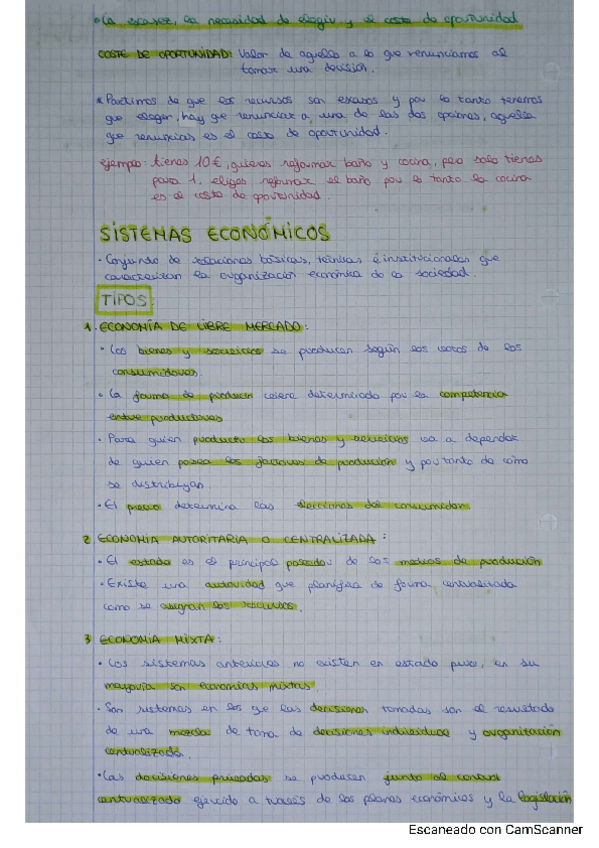 • La escasez, la necesidad de elegir y el coste de oportunidad
COSTE DE OPORTUNIDAD: Valor de aquello a lo que renunciamos al
tomar una decisión.
* Partimos de que los recursos son escasos y por lo tanto tenemos
que elegir, hay que renunciar a una de las dos opciones, aquella
que renuncias es el costo de oportunidad.
ejemplo: tienes 10€, quieres reformar baño y cocina, pero solo tienes
para 1. eliges reformar el baño por lo tanto la cocina
es el costo de oportunidad.
SISTEMAS ECONÓMICOS
• Conjunto de relaciones básicas, técnicas e institucionales que
caracterizan la organización económica de la sociedad.
TIPOS:
1. ECONOMÍA DE LIBRE MERCADO:
• Los bienes y servicios se producen según los votos de los
consumidores.
• La forma de producir estará determinado por la competencia
entre productores
• Para quien producto los bienes y servicios va a depender
de quien posea los factores de producción y por tanto de como
se distribuyan
• El precio determina las elecciones del consumidor
2. ECONOMÍA AUTORITARIA O CENTRALIZADA:
• El estado es el principal poseedor de los medios de producción
• Existe una autoridad que planifica de forma centralizada
como se asignan los recursos.
3 ECONOMIA MIXTA:
• Los sistemas anteriores no existen en estado puro, en su
mayoría son economías mixtas.
• Son sistemas en los que las decisiones tomadas son el resultado
de una mezcla de toma de decisiones individuales y organización
centralizada.
• Las decisiones privadas se producen junto al control
centralizado ejercido a través de los planes económicos y la legislación
Escaneado con CamScanner